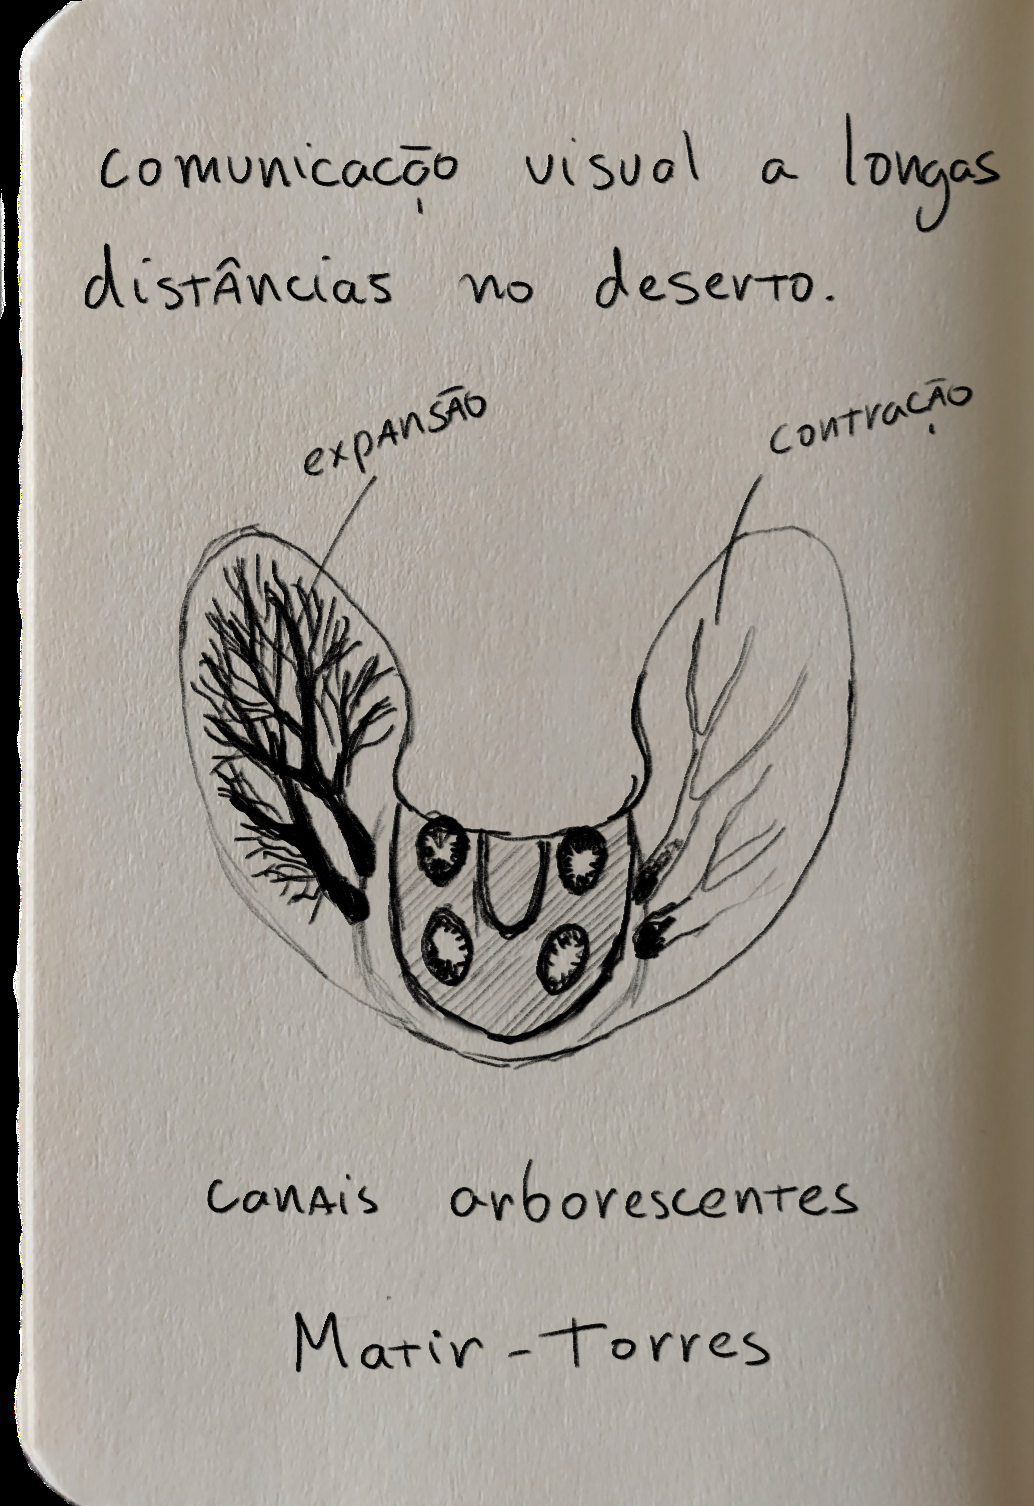 comunicação visual a longas
distâncias no deserto.
expansão
contração
canais arborescentes
Matir-Torres